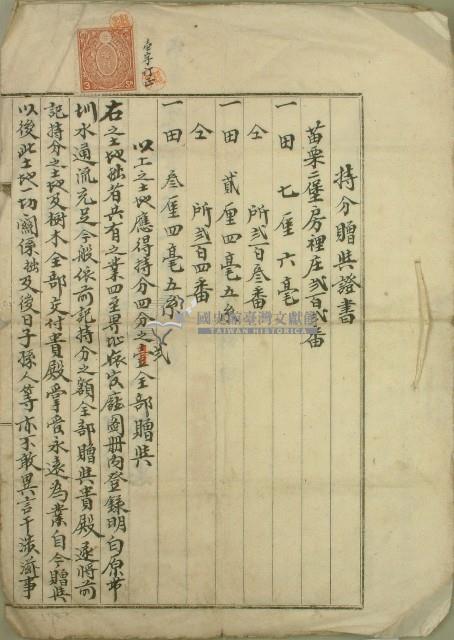 持分贈與證書
苗栗二堡房裡庄弍百弍番
一田七厘六毫
仝所弍百叁番
一田貳厘四毫五糸
仝所弍百四番
一田叁厘四毫五糸
以上之土地應得持分四分之壹全部贈與
弍
右之土地拙者共有之業四至界址依官廳圖冊內登錄明白原帶
圳水通流充足今般依前記持分之額全部贈與貴殿遂將前
記持分之土地及樹木全部交付貴殿掌管永遠為業自今贈與
以後此土地一切關係拙及後日子孫人等亦不敢異言干涉滋事
壹字訂正
3 Sn
國史館臺灣文獻館
TAIWAN HISTORICA